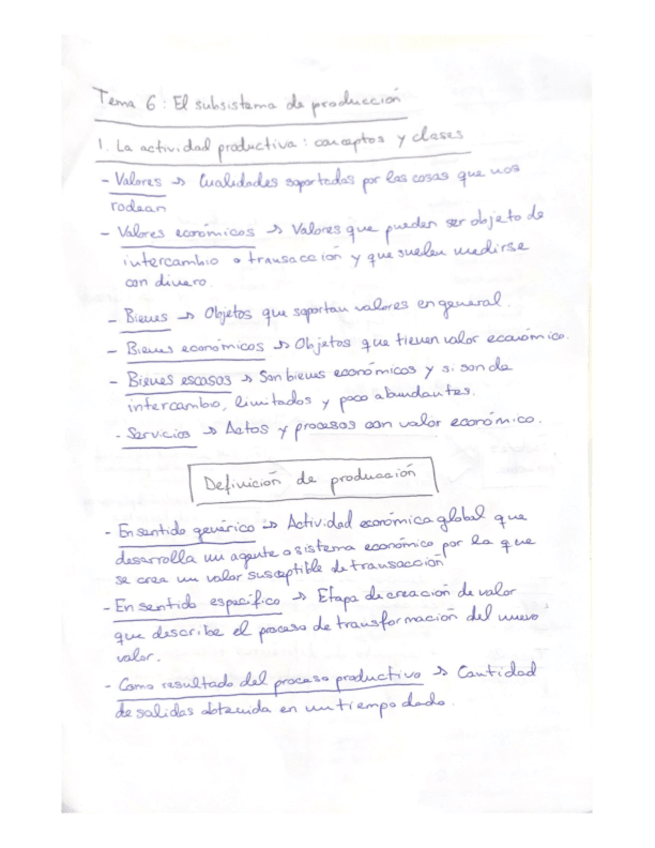 Tema 6: El subsistema de producción
1. La actividad productiva: conceptos y clases
- Valores → Cualidades soportadas por las cosas que nos
rodean
- Valores económicos → Valores que pueden ser objeto de
intercambio o transacción y que suelen medirse
con dinero.
- Bienes → Objetos que soportan valores en general.
- Bienes económicos → Objetos que tienen valor económico.
- Bienes escasos → Son bienes económicos y si son de
intercambio, limitados y poco abundantes.
- Servicios → Actos y procesos con valor económico.
Definición de producción
- En sentido genérico → Actividad económica global que
desarrolla un agente o sistema económico por la que
se crea un valor susceptible de transacción
- En sentido específico → Etapa de creación de valor
que describe el proceso de transformación del nuevo
valor.
- Como resultado del proceso productivo → Cantidad
de salidas obtenida en un tiempo dado.